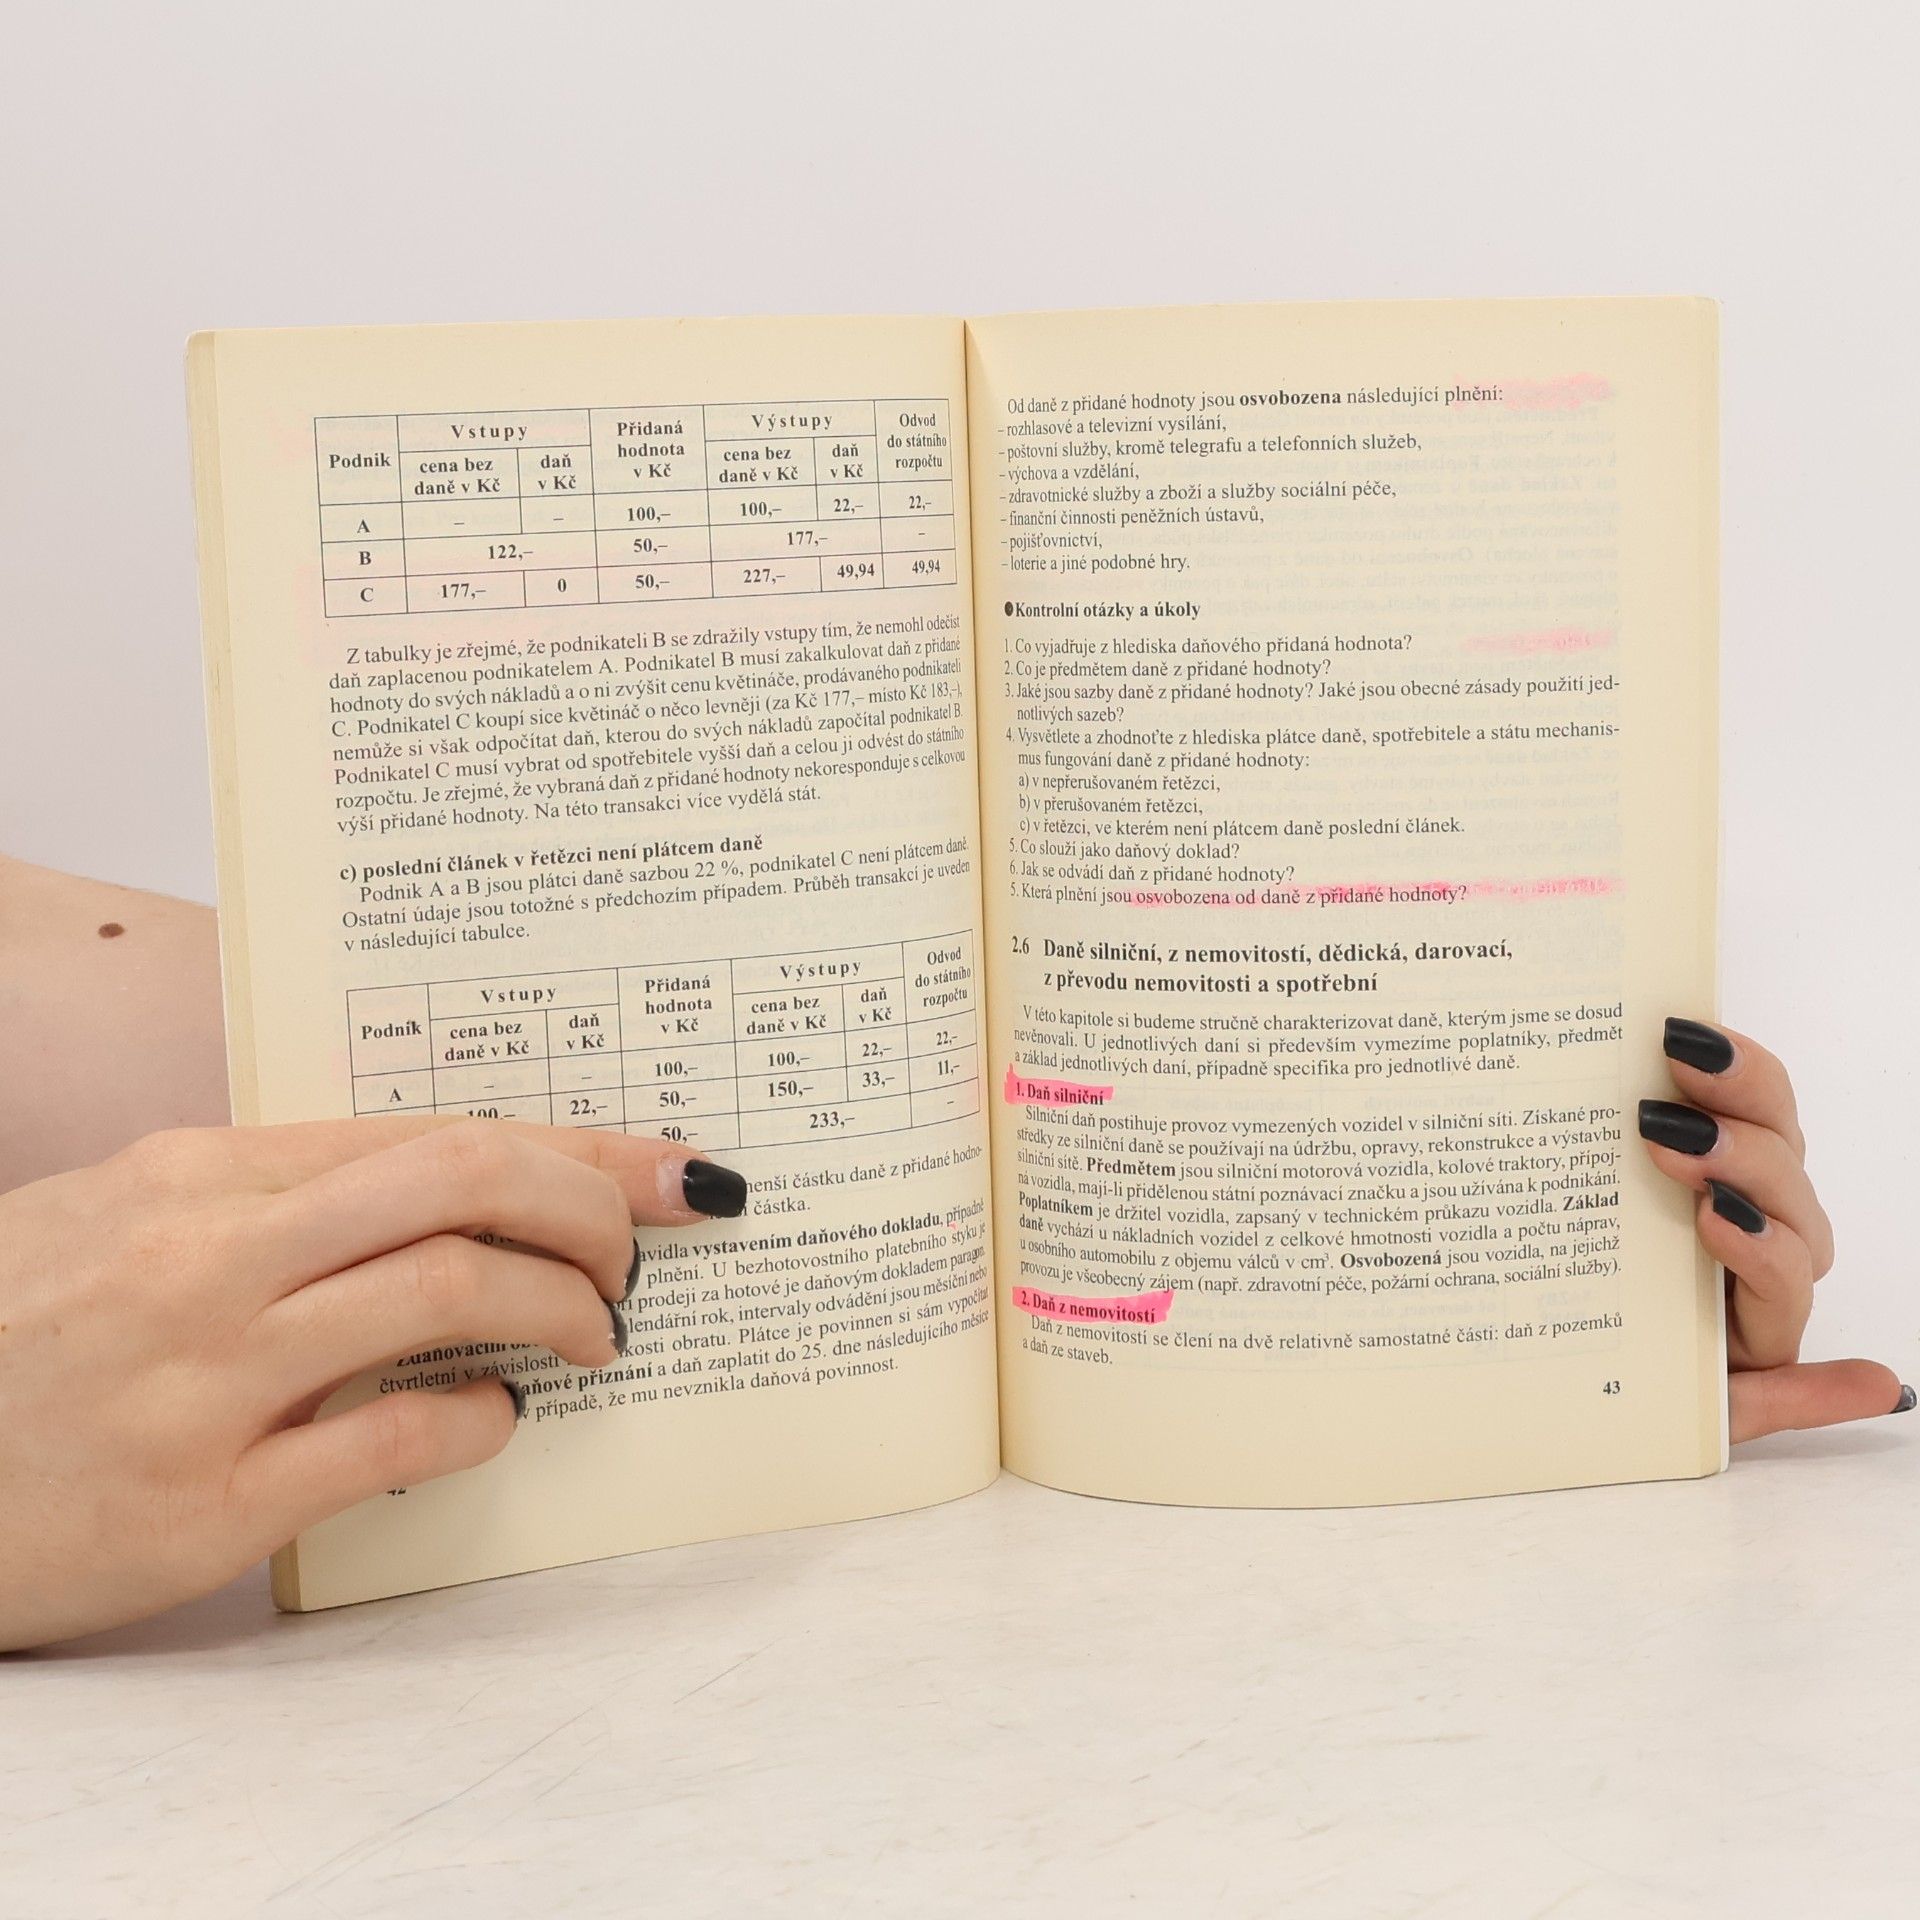 Podnik Vstupy Přidaná hodnota v Kč Výstupy Odvod do státního rozpočtu
cena bez daně v Kč daň v Kč cena bez daně v Kč daň v Kč
A – – 100,– 100,– 22,– 22,–
B 122,– 50,– 177,– –
C 177,– 0 50,– 227,– 49,94 49,94
Z tabulky je zřejmé, že podnikateli B se zdražily vstupy tím, že nemohl odečíst
daň zaplacenou podnikatelem A. Podnikatel B musí zakalkulovat daň z přidané
hodnoty do svých nákladů a o ni zvýšit cenu květináče, prodávaného podnikateli
C. Podnikatel C koupí sice květináč o něco levněji (za Kč 177,– místo Kč 183,–),
nemůže si však odpočítat daň, kterou do svých nákladů započítal podnikatel B.
Podnikatel C musí vybrat od spotřebitele vyšší daň a celou ji odvést do státního
rozpočtu. Je zřejmé, že vybraná daň z přidané hodnoty nekoresponduje s celkovou
výší přidané hodnoty. Na této transakci více vydělá stát.
c) poslední článek v řetězci není plátcem daně
Podnik A a B jsou plátci daně sazbou 22 %, podnikatel C není plátcem daně.
Ostatní údaje jsou totožné s předchozím případem. Průběh transakcí je uveden
v následující tabulce.
Podnik Vstupy Přidaná hodnota v Kč Výstupy Odvod do státního rozpočtu
cena bez daně v Kč daň v Kč cena bez daně v Kč daň v Kč
A – – 100,– 100,– 22,– 22,–
100,– 22,– 50,– 150,– 33,– 11,–
50,– 233,– –
menší částku daně z přidané hodno-
částka.
vystavením daňového dokladu, případně
plnění. U bezhotovostního platebního styku je
při prodeji za hotové je daňovým dokladem paragon.
intervaly odvádění jsou měsíční nebo
čtvrtletní v závislosti obratu. Plátce je povinnen si sám vypočítat
přiznání a daň zaplatit do 25. dne následujícího měsíce
v případě, že mu nevznikla daňová povinnost.
42
Od daně z přidané hodnoty jsou osvobozena následující plnění:
– rozhlasové a televizní vysílání,
– poštovní služby, kromě telegrafu a telefonních služeb,
– výchova a vzdělání,
– zdravotnické služby a zboží a služby sociální péče,
– finanční činnosti peněžních ústavů,
– pojišťovnictví,
– loterie a jiné podobné hry.
● Kontrolní otázky a úkoly
1. Co vyjadřuje z hlediska daňového přidaná hodnota?
2. Co je předmětem daně z přidané hodnoty?
3. Jaké jsou sazby daně z přidané hodnoty? Jaké jsou obecné zásady použití jed-
notlivých sazeb?
4. Vysvětlete a zhodnoťte z hlediska plátce daně, spotřebitele a státu mechanis-
mus fungování daně z přidané hodnoty:
a) v nepřerušovaném řetězci,
b) v přerušovaném řetězci,
c) v řetězci, ve kterém není plátcem daně poslední článek.
5. Co slouží jako daňový doklad?
6. Jak se odvádí daň z přidané hodnoty?
5. Která plnění jsou osvobozena od daně z přidané hodnoty?
2.6 Daně silniční, z nemovitostí, dědická, darovací,
z převodu nemovitosti a spotřební
V této kapitole si budeme stručně charakterizovat daně, kterým jsme se dosud
nevěnovali. U jednotlivých daní si především vymezíme poplatníky, předmět
a základ jednotlivých daní, případně specifika pro jednotlivé daně.
1. Daň silniční
Silniční daň postihuje provoz vymezených vozidel v silniční síti. Získané pro-
středky ze silniční daně se používají na údržbu, opravy, rekonstrukce a výstavbu
silniční sítě. Předmětem jsou silniční motorová vozidla, kolové traktory, přípoj-
ná vozidla, mají-li přidělenou státní poznávací značku a jsou užívána k podnikání.
Poplatníkem je držitel vozidla, zapsaný v technickém průkazu vozidla. Základ
daně vychází u nákladních vozidel z celkové hmotnosti vozidla a počtu náprav,
u osobního automobilu z objemu válců v cm³. Osvobozená jsou vozidla, na jejichž
provozu je všeobecný zájem (např. zdravotní péče, požární ochrana, sociální služby).
2. Daň z nemovitostí
Daň z nemovitostí se člení na dvě relativně samostatné části: daň z pozemků
a daň ze staveb.
43